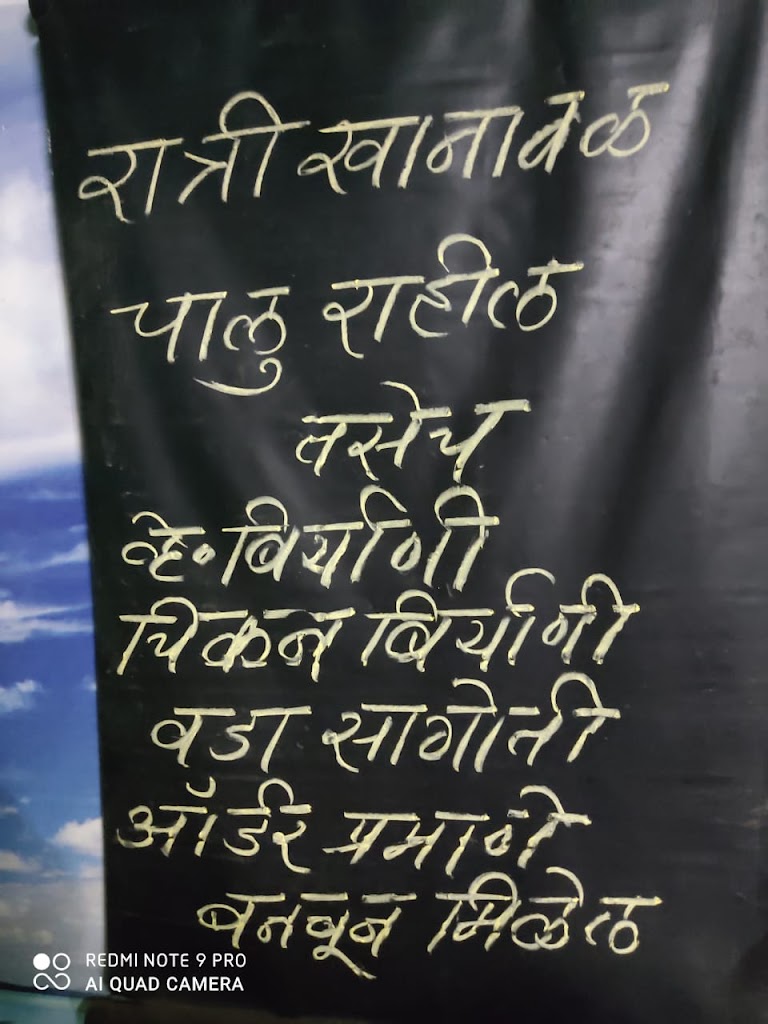 रात्री खानावळ
चालु राहील
तसेच
व्हे॰बिर्याणी
चिकन बिर्याणी
वडा सागोती
ऑर्डर प्रमाणे
बनवून मिळेल
REDMI NOTE 9 PRO
AI QUAD CAMERA